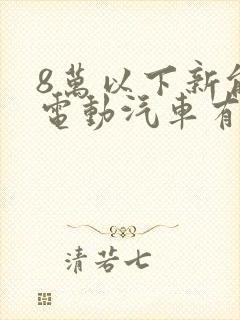 8萬以下新
電動汽車有
清若七